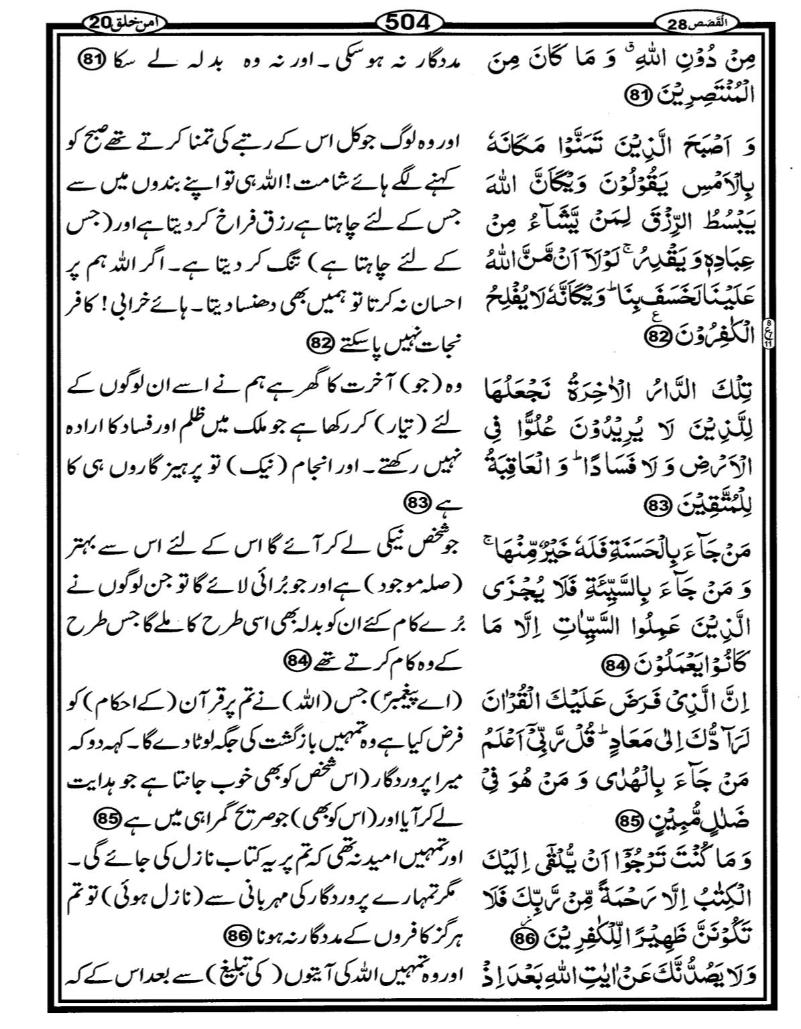 الْقَصَص 28
504
امن خلق 20
مِنْ دُوْنِ اللّٰهِ ۗ وَ مَا كَانَ مِنَ
الْمُنْتَصِرِيْنَ 81
وَ اَصْبَحَ الَّذِيْنَ تَمَنَّوْا مَكَانَهٗ
بِالْاَمْسِ يَقُوْلُوْنَ وَيْكَاَنَّ اللّٰهَ
يَبْسُطُ الرِّزْقَ لِمَنْ يَّشَآءُ مِنْ
عِبَادِهٖ وَ يَقْدِرُ ۚ لَوْلَاۤ اَنْ مَّنَّ اللّٰهُ
عَلَيْنَا لَخَسَفَ بِنَا ؕ وَيْكَاَنَّهٗ لَا يُفْلِحُ
الْكٰفِرُوْنَ 82 ع
تِلْكَ الدَّارُ الْاٰخِرَةُ نَجْعَلُهَا
لِلَّذِيْنَ لَا يُرِيْدُوْنَ عُلُوًّا فِي
الْاَرْضِ وَ لَا فَسَادًا ؕ وَ الْعَاقِبَةُ
لِلْمُتَّقِيْنَ 83
مَنْ جَآءَ بِالْحَسَنَةِ فَلَهٗ خَيْرٌ مِّنْهَا ۚ
وَ مَنْ جَآءَ بِالسَّيِّئَةِ فَلَا يُجْزَى
الَّذِيْنَ عَمِلُوا السَّيِّاٰتِ اِلَّا مَا
كَانُوْا يَعْمَلُوْنَ 84
اِنَّ الَّذِيْ فَرَضَ عَلَيْكَ الْقُرْاٰنَ
لَرَآدُّكَ اِلٰى مَعَادٍ ؕ قُلْ رَّبِّيْۤ اَعْلَمُ
مَنْ جَآءَ بِالْهُدٰى وَ مَنْ هُوَ فِيْ
ضَلٰلٍ مُّبِيْنٍ 85
وَ مَا كُنْتَ تَرْجُوْۤا اَنْ يُّلْقٰۤى اِلَيْكَ
الْكِتٰبُ اِلَّا رَحْمَةً مِّنْ رَّبِّكَ فَلَا
تَكُوْنَنَّ ظَهِيْرًا لِّلْكٰفِرِيْنَ 86
وَ لَا يَصُدُّنَّكَ عَنْ اٰيٰتِ اللّٰهِ بَعْدَ اِذْ
مددگار نہ ہو سکی ۔ اور نہ وہ بدلہ لے سکا 81
اور وہ لوگ جو کل اس کے رتبے کی تمنا کرتے تھے صبح کو
کہنے لگے ہائے شامت ! اللہ ہی تو اپنے بندوں میں سے
جس کے لئے چاہتا ہے رزق فراخ کر دیتا ہے اور ( جس
کے لئے چاہتا ہے ) تنگ کر دیتا ہے۔ اگر اللہ ہم پر
احسان نہ کرتا تو ہمیں بھی دھنسا دیتا۔ ہائے خرابی ! کافر
نجات نہیں پا سکتے 82
وہ ( جو ) آخرت کا گھر ہے ہم نے اسے ان لوگوں کے
لئے ( تیار ) کر رکھا ہے جو ملک میں ظلم اور فساد کا ارادہ
نہیں رکھتے۔ اور انجام ( نیک ) تو پرہیز گاروں ہی کا
ہے 83
جو شخص نیکی لے کر آئے گا اس کے لئے اس سے بہتر
( صلہ موجود ) ہے اور جو بُرائی لائے گا تو جن لوگوں نے
بُرے کام کئے ان کو بدلہ بھی اسی طرح کا ملے گا جس طرح
کے وہ کام کرتے تھے 84
( اے پیغمبرؐ ) جس ( اللہ ) نے تم پر قرآن ( کے احکام ) کو
فرض کیا ہے وہ تمہیں بازگشت کی جگہ لوٹا دے گا۔ کہہ دو کہ
میرا پروردگار ( اس شخص کو بھی خوب جانتا ہے جو ہدایت
لے کر آیا اور ( اس کو بھی ) جو صریح گمراہی میں ہے 85
اور تمہیں امید نہ تھی کہ تم پر یہ کتاب نازل کی جائے گی ۔
مگر تمہارے پروردگار کی مہربانی سے ( نازل ہوئی ) تو تم
ہرگز کافروں کے مددگار نہ ہونا 86
اور وہ تمہیں اللہ کی آیتوں ( کی تبلیغ ) سے بعد اس کے کہ